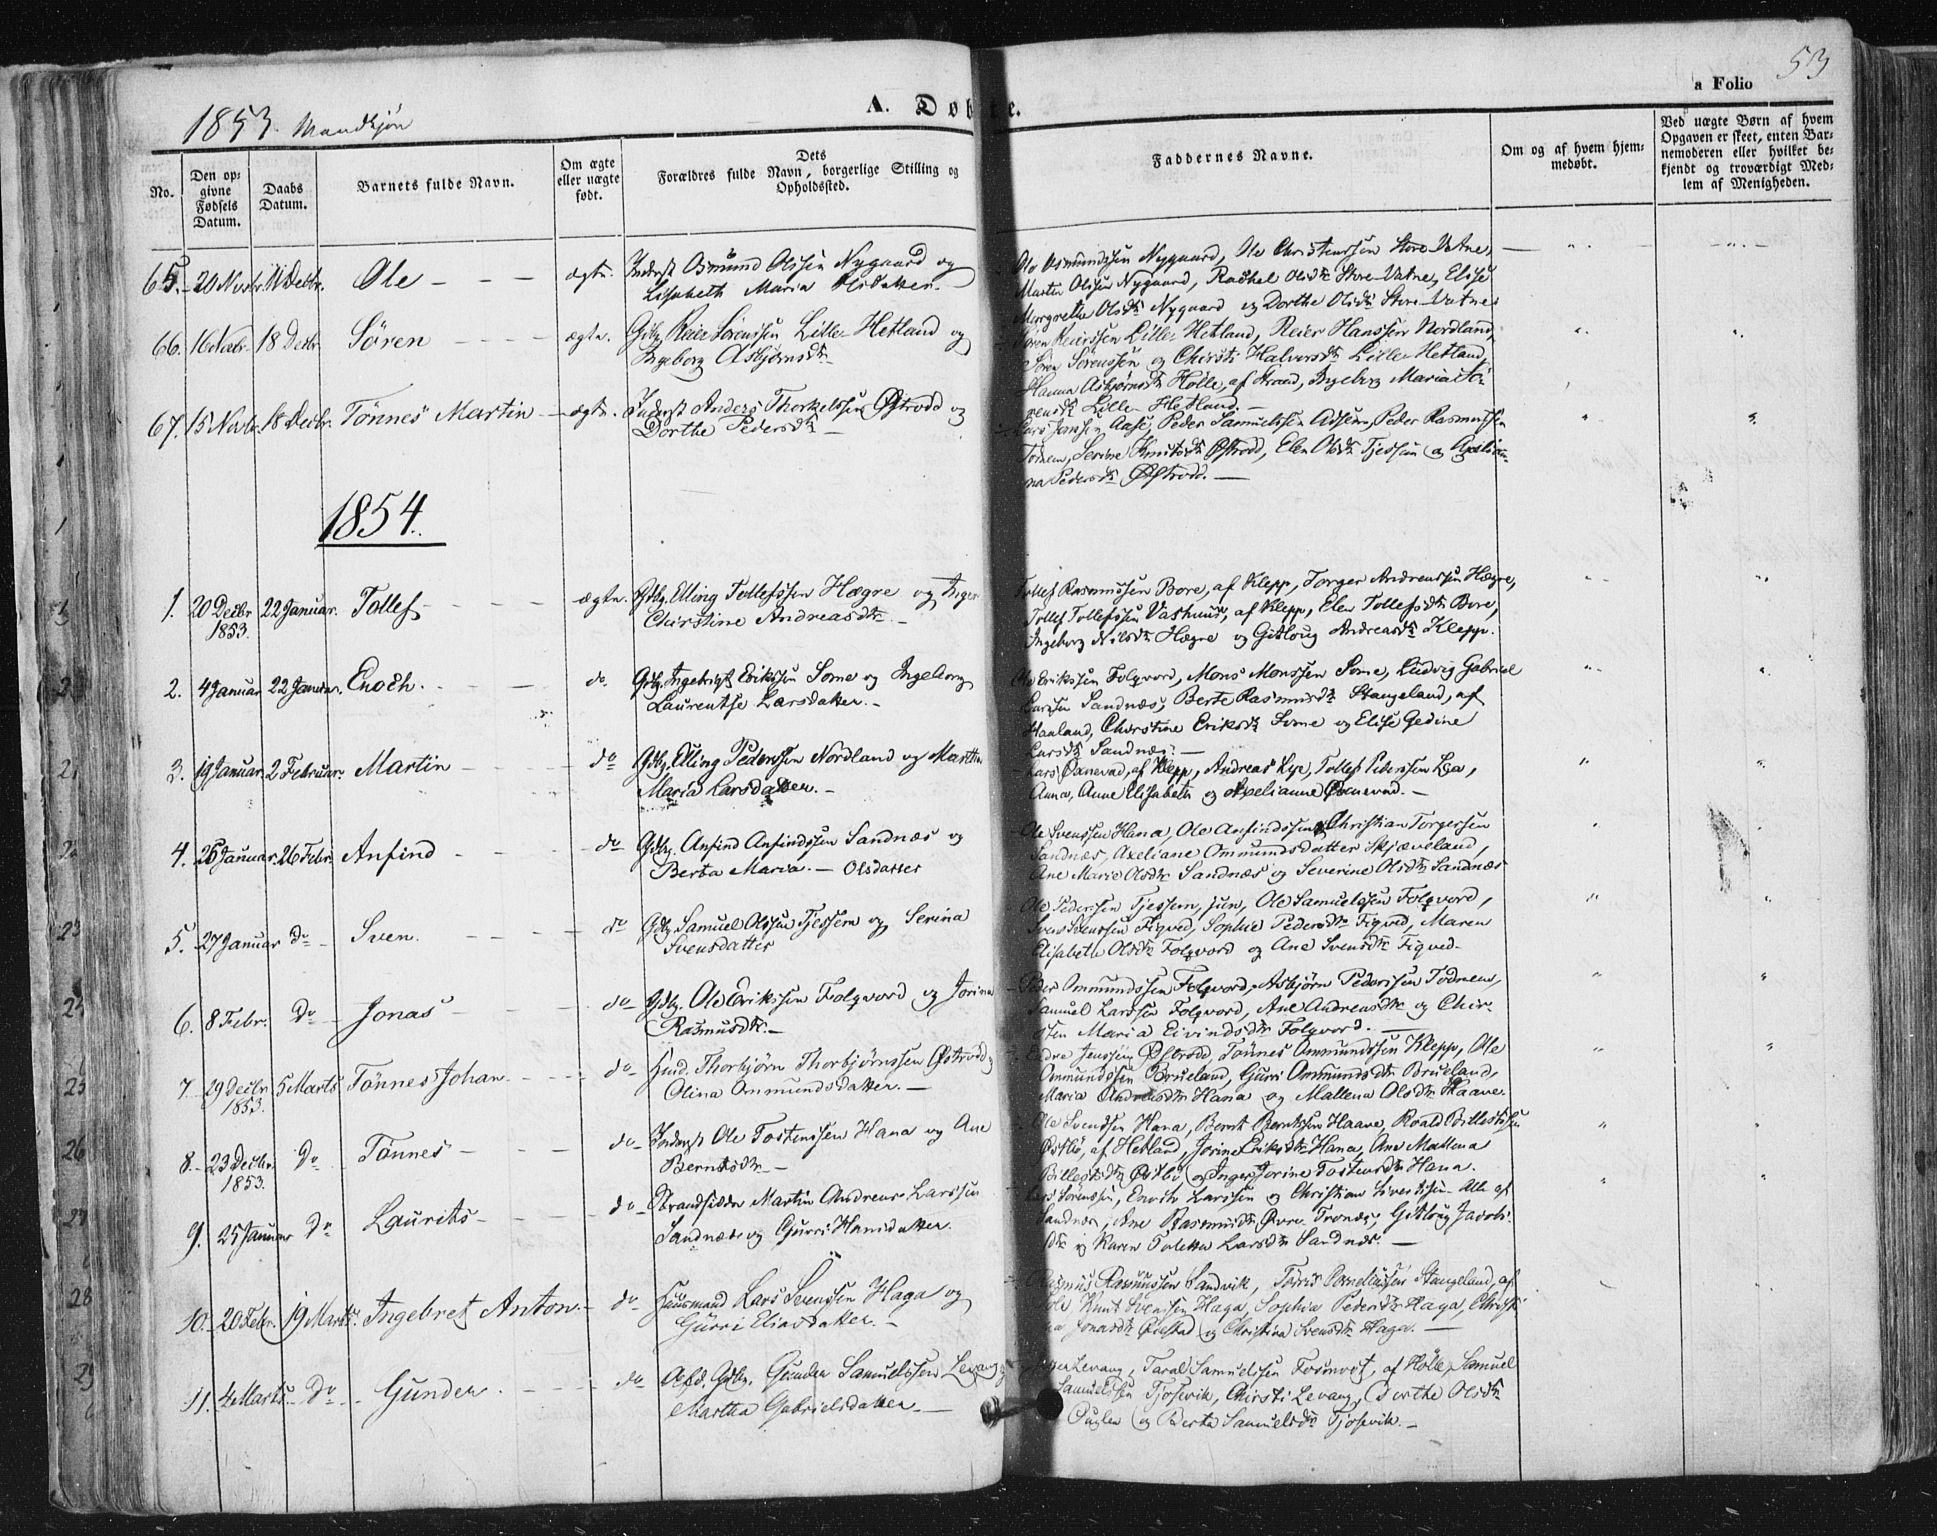 53
a Folio
1853. Mandkjøn
A. Døbte.
No.
Den op-
givne
Fødsels
Datum.
Daabs
Datum.
Barnets fulde Navn.
Om ægte
eller uægte
født.
Dets
Forældres fulde Navn, borgerlige Stilling og
Opholdssted.
Faddernes Navne.
Om og af hvem hjem-
medøbt.
Ved uægte Børn af hvem
Opgaven er skeet, enten Bar-
nemoderen eller hvilket be-
kjendt og troværdigt Med-
lem af Menigheden.
65. 20 Novbr. 11 Decbr. Ole ægte. Inderst Osmund Olssen Nygaard og
Lisabeth Maria Olsdatter.
Ole Osmundssen Nygaard, Ole Christenssen Store-Vatne,
Martin Olssen Nygaard, Rachel Olsdtr Store-Vatne, Elise
Mergrethe Olsdtr Nygaard og Dorthe Olsdtr Store-Vatne
66. 16 Novbr. 18 Decbr. Søren ægte. Gdbr. Reier Sörenssen Lille-Hetland og
Ingeborg Asbjørnsdtr
Sören Reierssen Lille-Hetland, Reier Hanssen Nordland,
Sören Sörenssen og Chirsti Halvorsdtr Lille-Hetland,
Hanna Asbjørnsdtr Hølle, af Strand, Ingeborg Maria Sö-
rensdtr Lille-Hetland.
67. 15 Novbr. 18 Decbr. Tönnes Martin ægte. Inderst Anders Thorkelssen Østrodd og
Dorthe Pedersdtr
Lars Jonssen Aase, Peder Samuelssen Adsen, Peder Rasmussen
Todnem, Serine Knutsdtr Østrodd, Elen Olsdtr Tjessem og Axelian-
na Pedersdtr Østrodd.
1854.
1. 20 Decbr. 1853. 22 Januar. Tollef ægte. Gdbr. Elling Tollefssen Høgre og Inger
Christine Andreasdtr.
Tollef Rasmussen Bore, af Klepp, Torger Andreassen Høgre,
Tollef Tollefssen Vashuus, af Klepp, Elen Tollefsdtr Bore,
Ingeborg Nilsdtr Høgre og Gitloug Andreasdtr Klepp.
2. 4 Januar 22 Januar. Enoch. do. Gdbr. Ingebrigt Erikssen Some og Ingeborg
Laurentse Larsdatter.
Ole Erikssen Folqvord, Mons Monssen Some, Ludvig Gabriel
Larssen Sandnæs, Berte Rasmusdtr Stangeland, af
Haaland, Christine Eriksdtr Some og Elise Gedine
Larsdtr Sandnæs.
3. 19 Januar. 2 Februar. Martin do Gdbr. Elling Pederssen Nordland og Martha
Maria Larsdatter.
Lars Øxnevad, af Klepp, Andreas Lye, Tollef Pederssen Lea,
Anna, Anne Elisabeth og Axelianne Øxnevad.
4. 26 Januar. 26 Febr. Anfind do Gdbr. Anfind Anfindssen Sandnæs og
Berta Maria. Olsdatter
Ole Svenssen Hana, Ole Anfindssen og Christian Torgersen
Sandnæs, Axeliane Ommundsdatter Skjæveland,
Ane Marie Olsdtr Sandnæs og Severine Olsdtr Sandnæs
5. 27 Januar do Sven. do Gdbr. Samuel Olssen Tjessem og Serina
Svensdatter
Ole Pederssen Tjessem, jun, Ole Samuelssen Folqvord,
Sven Svenssen Figved, Sophie Pedersdtr Figved, Maren
Elisabeth Olsdtr Folqvord og Ane Svensdtr Figved.
6. 8 Febr. Do Jonas do Gdbr. Ole Erikssen Folqvord og Jorina
Rasmusdtr.
Peder Ommundssen Folqvord, Asbjørn Pederssen Todnem,
Samuel Larssen Folqvord, Ane Andreasdtr og Chir-
sten Maria Eivindsdtr Folqvord.
7. 29 Decbr. 1853. 5 Marts Tönnes Johan do Huusmd. Thorbjörn Thorbjörnssen Østrodd og
Olina Ommundsdatter.
Endre Jenssen Østrodd, Tönnes Ommundssen Klepp, Ole
Ommundssen Brueland, Gurri Ommundsdtr Brueland,
Maria Andreasdtr Hana og Mallena Olsdtr Haave.
8. 23 Decbr. 1853. Do Tönnes do Inderst Ole Tostenssen Hana og Ane
Berntsdtr
Ole Svendsen Hana, Bernt Berntssen Haave, Roald Billestssen
Østbø, af Hetland, Jorine Eriksdtr Hana, Ane Mallena
Billestsdtr Østbø og Inger Jorine Tostensdtr Hana.
9. 25 Januar Do Laurits do Strandsidder Martin Andreas Larssen
Sandnæs og Gurri Hansdatter
Lars Sörenssen, Enoch Larssen og Christian Sivertssen Alle af
Sandnæs, Ane Rasmusdtr Øvre-Tronæs, Gitloug Jacobs-
dtr og Karen Toletta Larsdtr Sandnæs.
10. 20 Febr. 19 Marts. Ingebret Anton. do Huusmand Lars Svenssen Haga og
Gurri Eliasdatter.
Rasmus Rasmussen Sandvik, Tørris Corneliussen Stangeland, af
Knut Svenssen Haga, Sophia Pedersdtr Haga, Christi
na Jonasdtr og Christina Svensdtr Haga.
11. 4 Marts Do Gunder. do Afsk. Gdbr. Gunder Samuelssen Levang og
Martha Gabrielsdatter.
Levang, Taral Samuelssen Fossnvot, af Hølle, Samuel
Samuelssen Tjosevik, Chirsti Levang, Dorthe Olsdtr
og Berta Samuelsdtr Tjosevik.